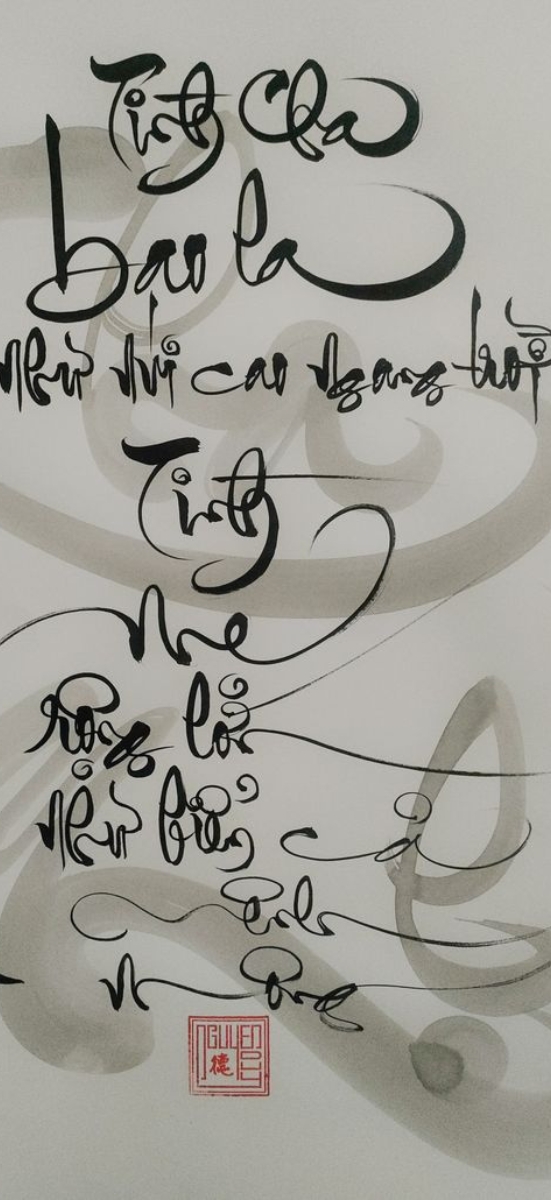 Tình Cha
bao la
Như núi cao ngang trời
Tình
Mẹ
rộng lớn
Như biển cả
mênh
Mông
NGUYEN
德